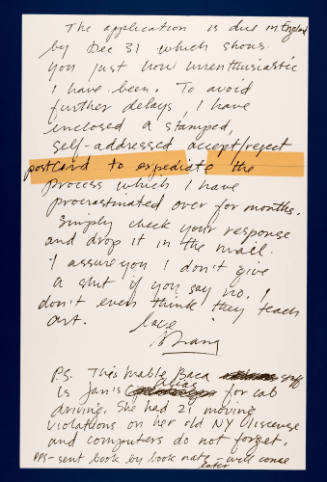 The application is due in England
by Dec 31 which shows
you just how unenthusiastic
I have been. To avoid
further delays, I have
enclosed a stamped,
self-addressed accept/reject
postcard to expediate the
process which I have
procrastinated over for months.
Simply check your response
and drop it in the mail.
I assure you I don't give
a shit if you say no. I
don't even think they teach
art.
love
PS. This Mable Baca stuff
is Jan's alias for cab
driving. She had 21 moving
violations on her old NY liscense
and computers do not forget.
PPS - sent book by book rate - will come
later